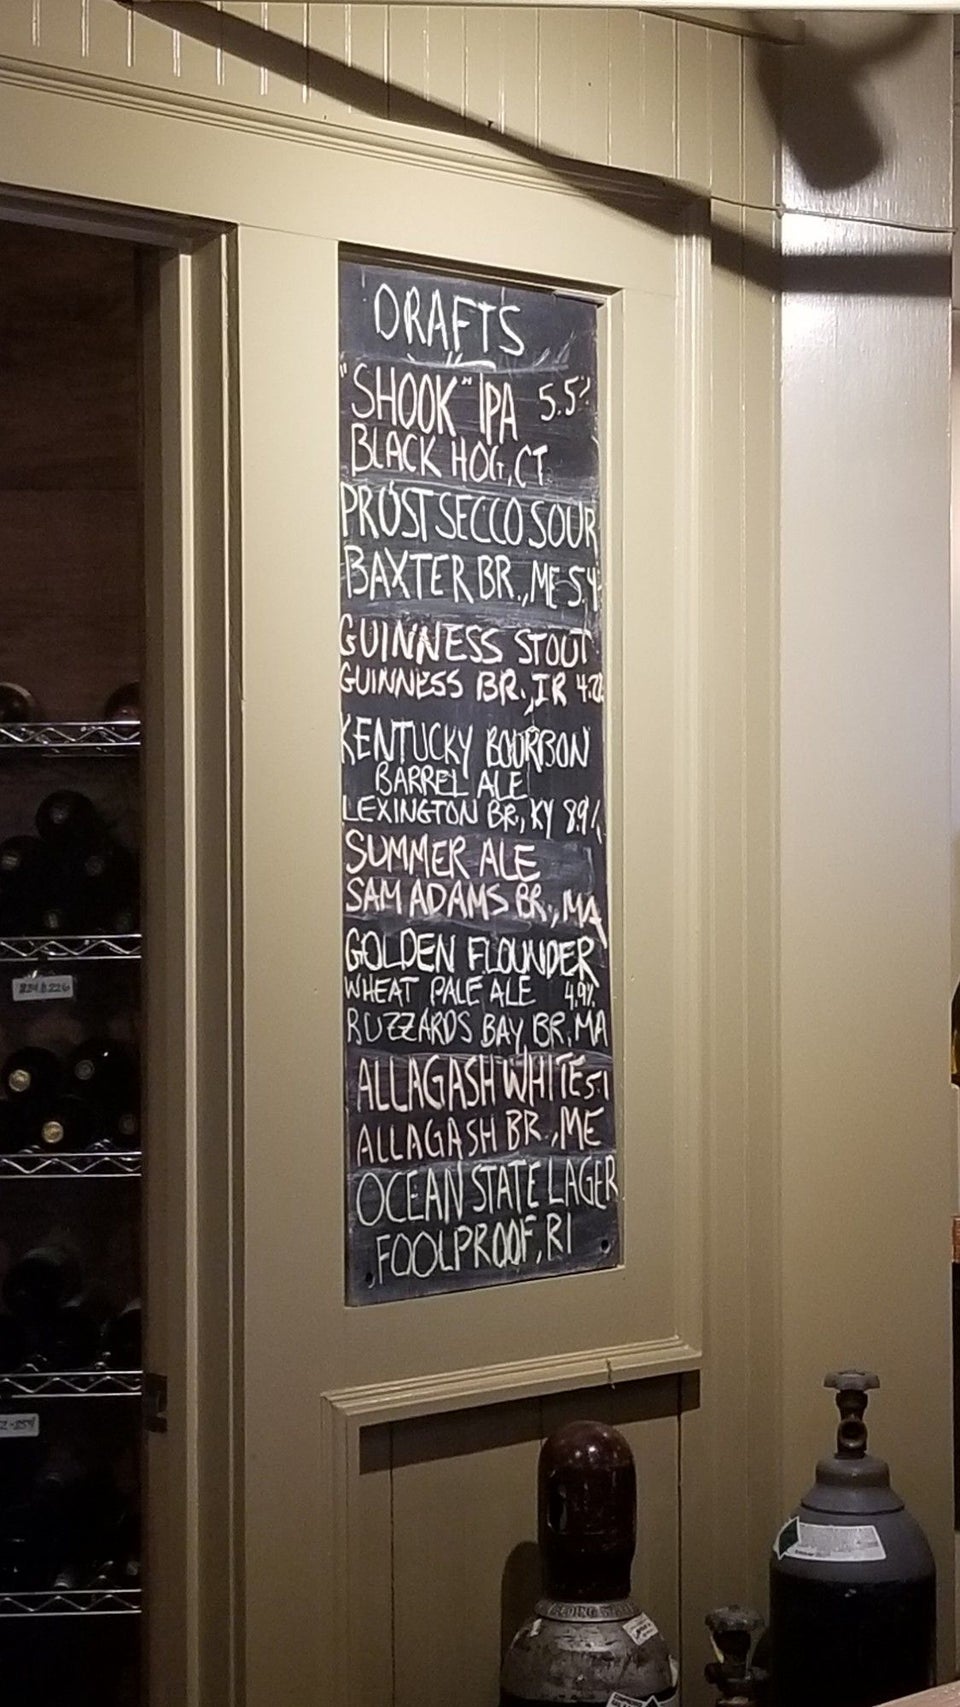 DRAFTS
"SHOOK" IPA 5.5%
BLACK HOG, CT
PROST SECCO SOUR
BAXTER BR., ME 5.4%
GUINNESS STOUT
GUINNESS BR., IR 4.2%
KENTUCKY BOURBON
BARREL ALE
LEXINGTON BR., KY 8.9%
SUMMER ALE
SAM ADAMS BR., MA
GOLDEN FLOUNDER
WHEAT PALE ALE 4.9%
BUZZARDS BAY BR. MA
ALLAGASH WHITE 5.1
ALLAGASH BR., ME
OCEAN STATE LAGER
FOOLPROOF, RI